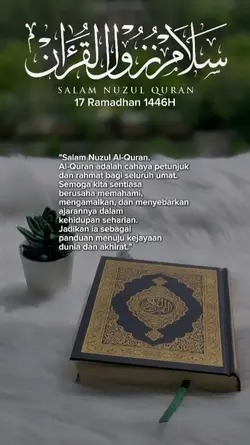 سلام نزول القرآن
SALAM NUZUL QURAN
17 Ramadhan 1446H
"Salam Nuzul Al-Quran.
Al-Quran adalah cahaya petunjuk
dan rahmat bagi seluruh umat.
Semoga kita sentiasa
berusaha memahami,
mengamalkan, dan menyebarkan
ajarannya dalam
kehidupan seharian.
Jadikan ia sebagai
panduan menuju kejayaan
dunia dan akhirat."